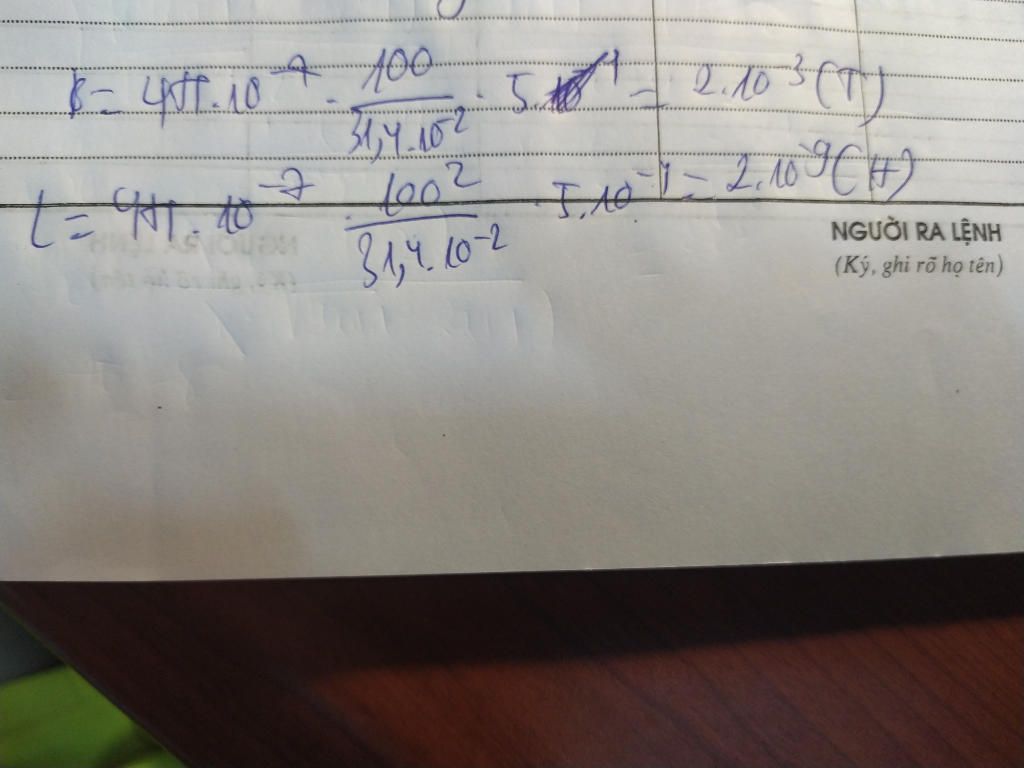 B = 4π.10^-7 . 100/31,4.10^-2 . 5. = 2.10^-3 (T)
L = 4π.10^-7 . 100^2/31,4.10^-2 . 5.10^-1 = 2.10^-9 (H)
NGƯỜI RA LỆNH
(Ký, ghi rõ họ tên)